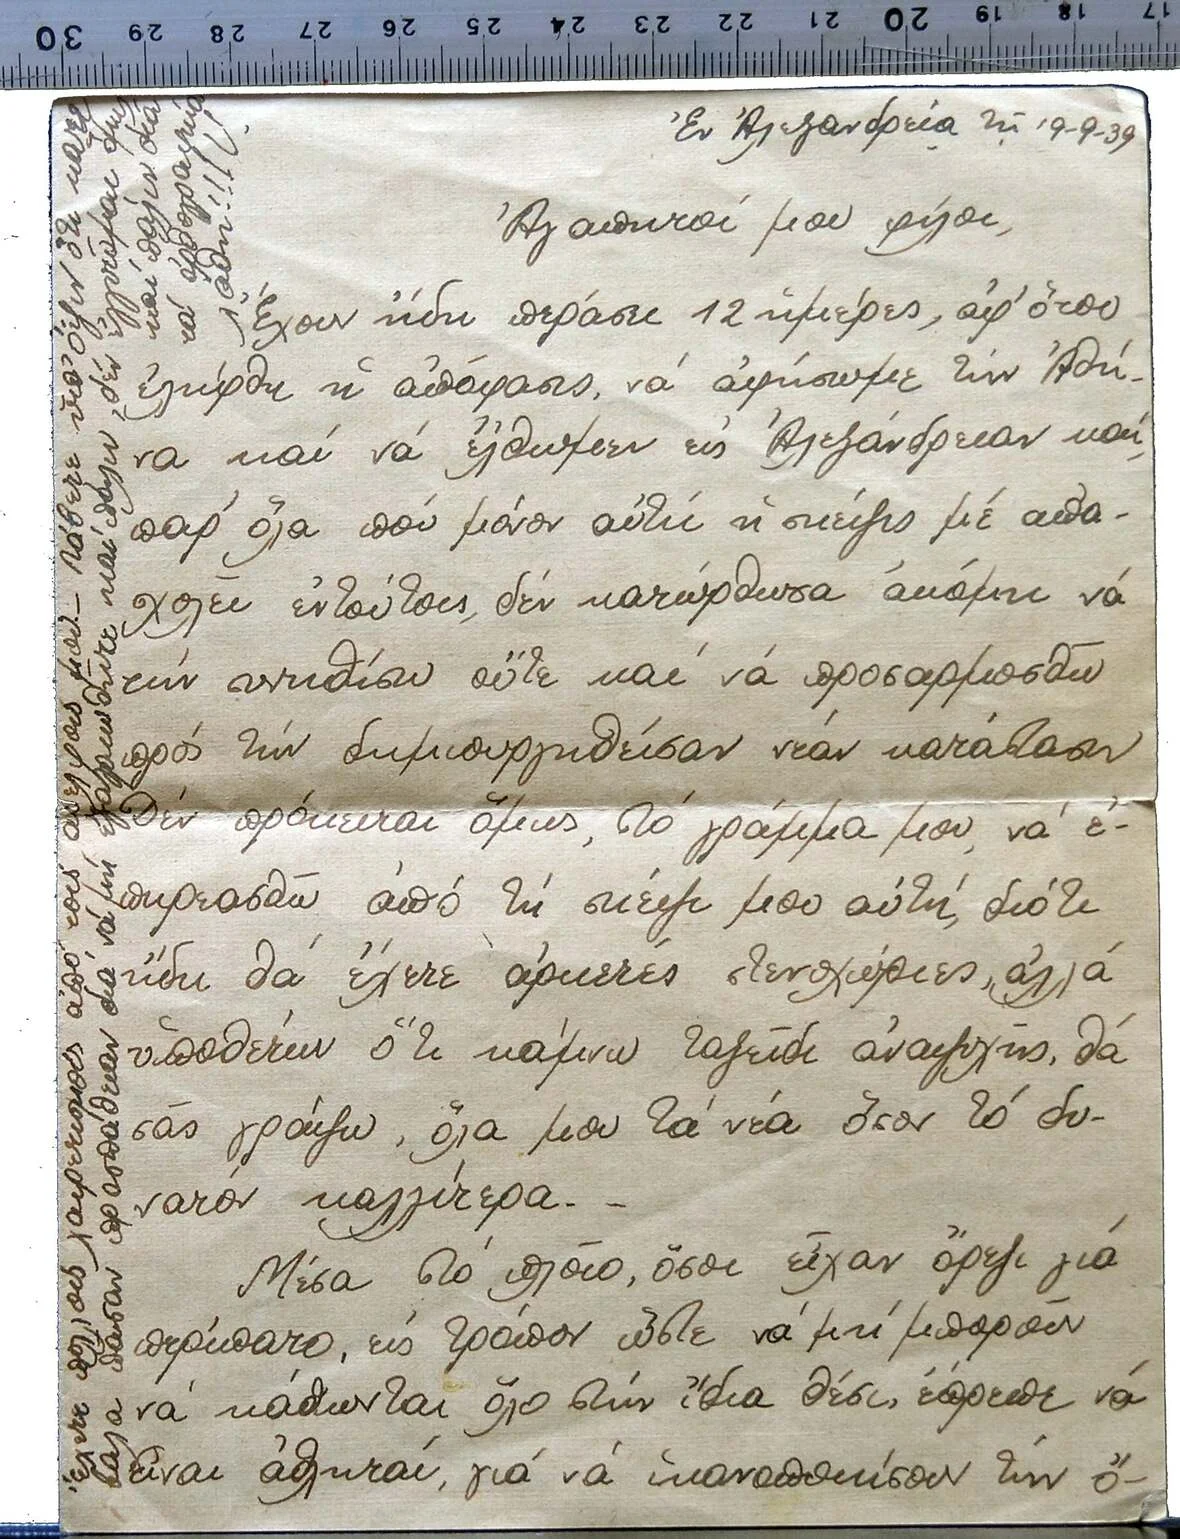 30 29 28 27 26 25 24 23 22 21 20 19 18 17
Ἐν Ἀλεξανδρείᾳ τῇ 19-9-39
Ἀγαπητοί μου φίλοι,
Ἔχουν ἤδη περάσει 12 ἡμέρες, ἀφ' ὅτου
ἐλήφθη ἡ ἀπόφασις, νά ἀφήσωμε τήν Ἀθή-
να καί νά ἔλθωμεν εἰς Ἀλεξάνδρειαν καί,
παρ' ὅλα πού μόνον αὐτή ἡ σκέψις μέ απα-
χολεῖ ἐντούτοις, δέν κατώρθωσα ἀκόμη νά
τήν συνηθίσω οὔτε καί νά προσαρμοσθῶ
πρός τήν δημιουργηθεῖσαν νέαν κατάστασιν
Δέν πρόκειται ὅμως, τό γράμμα μου, νά ἐ-
πηρεασθῇ ἀπό τή σκέψι μου αὐτή, διότι
ἤδη θά ἔχετε ἀρκετές στενοχώριες, ἀλλά
ὑποθέτων ὅτι κάμνω ταξεῖδι ἀναψυχῆς, θά
σᾶς γράψω, ὅλα μου τά νέα ὅσον τό δυ-
νατόν καλλίτερα. -
Μέσα στό πλοῖο, ὅσοι εἶχαν ὄρεξι γιά
περίπατο, εἰς τρόπον ὥστε νά μή μποροῦν
νά κάθωνται ὅλο στήν ἴδια θέσι, ἔπρεπε νά
εἶναι ἀθληταί, γιά νά ἱκανοποιήσουν τήν ὄ-
Ἔχετε πολλούς χαιρετισμούς ἀπό τούς ἀδελφούς μου - Λάβετε ὑπ' ὄψιν ὅτι κατέ
βαλα πᾶσαν προσπάθειαν διά νά μή ἐξαπλωθῆτε καί πάλιν, δέν ἐγγυῶμαι ὅμως
καί πάλιν διά
τά ὀρθογραφικά
λάθη!!!